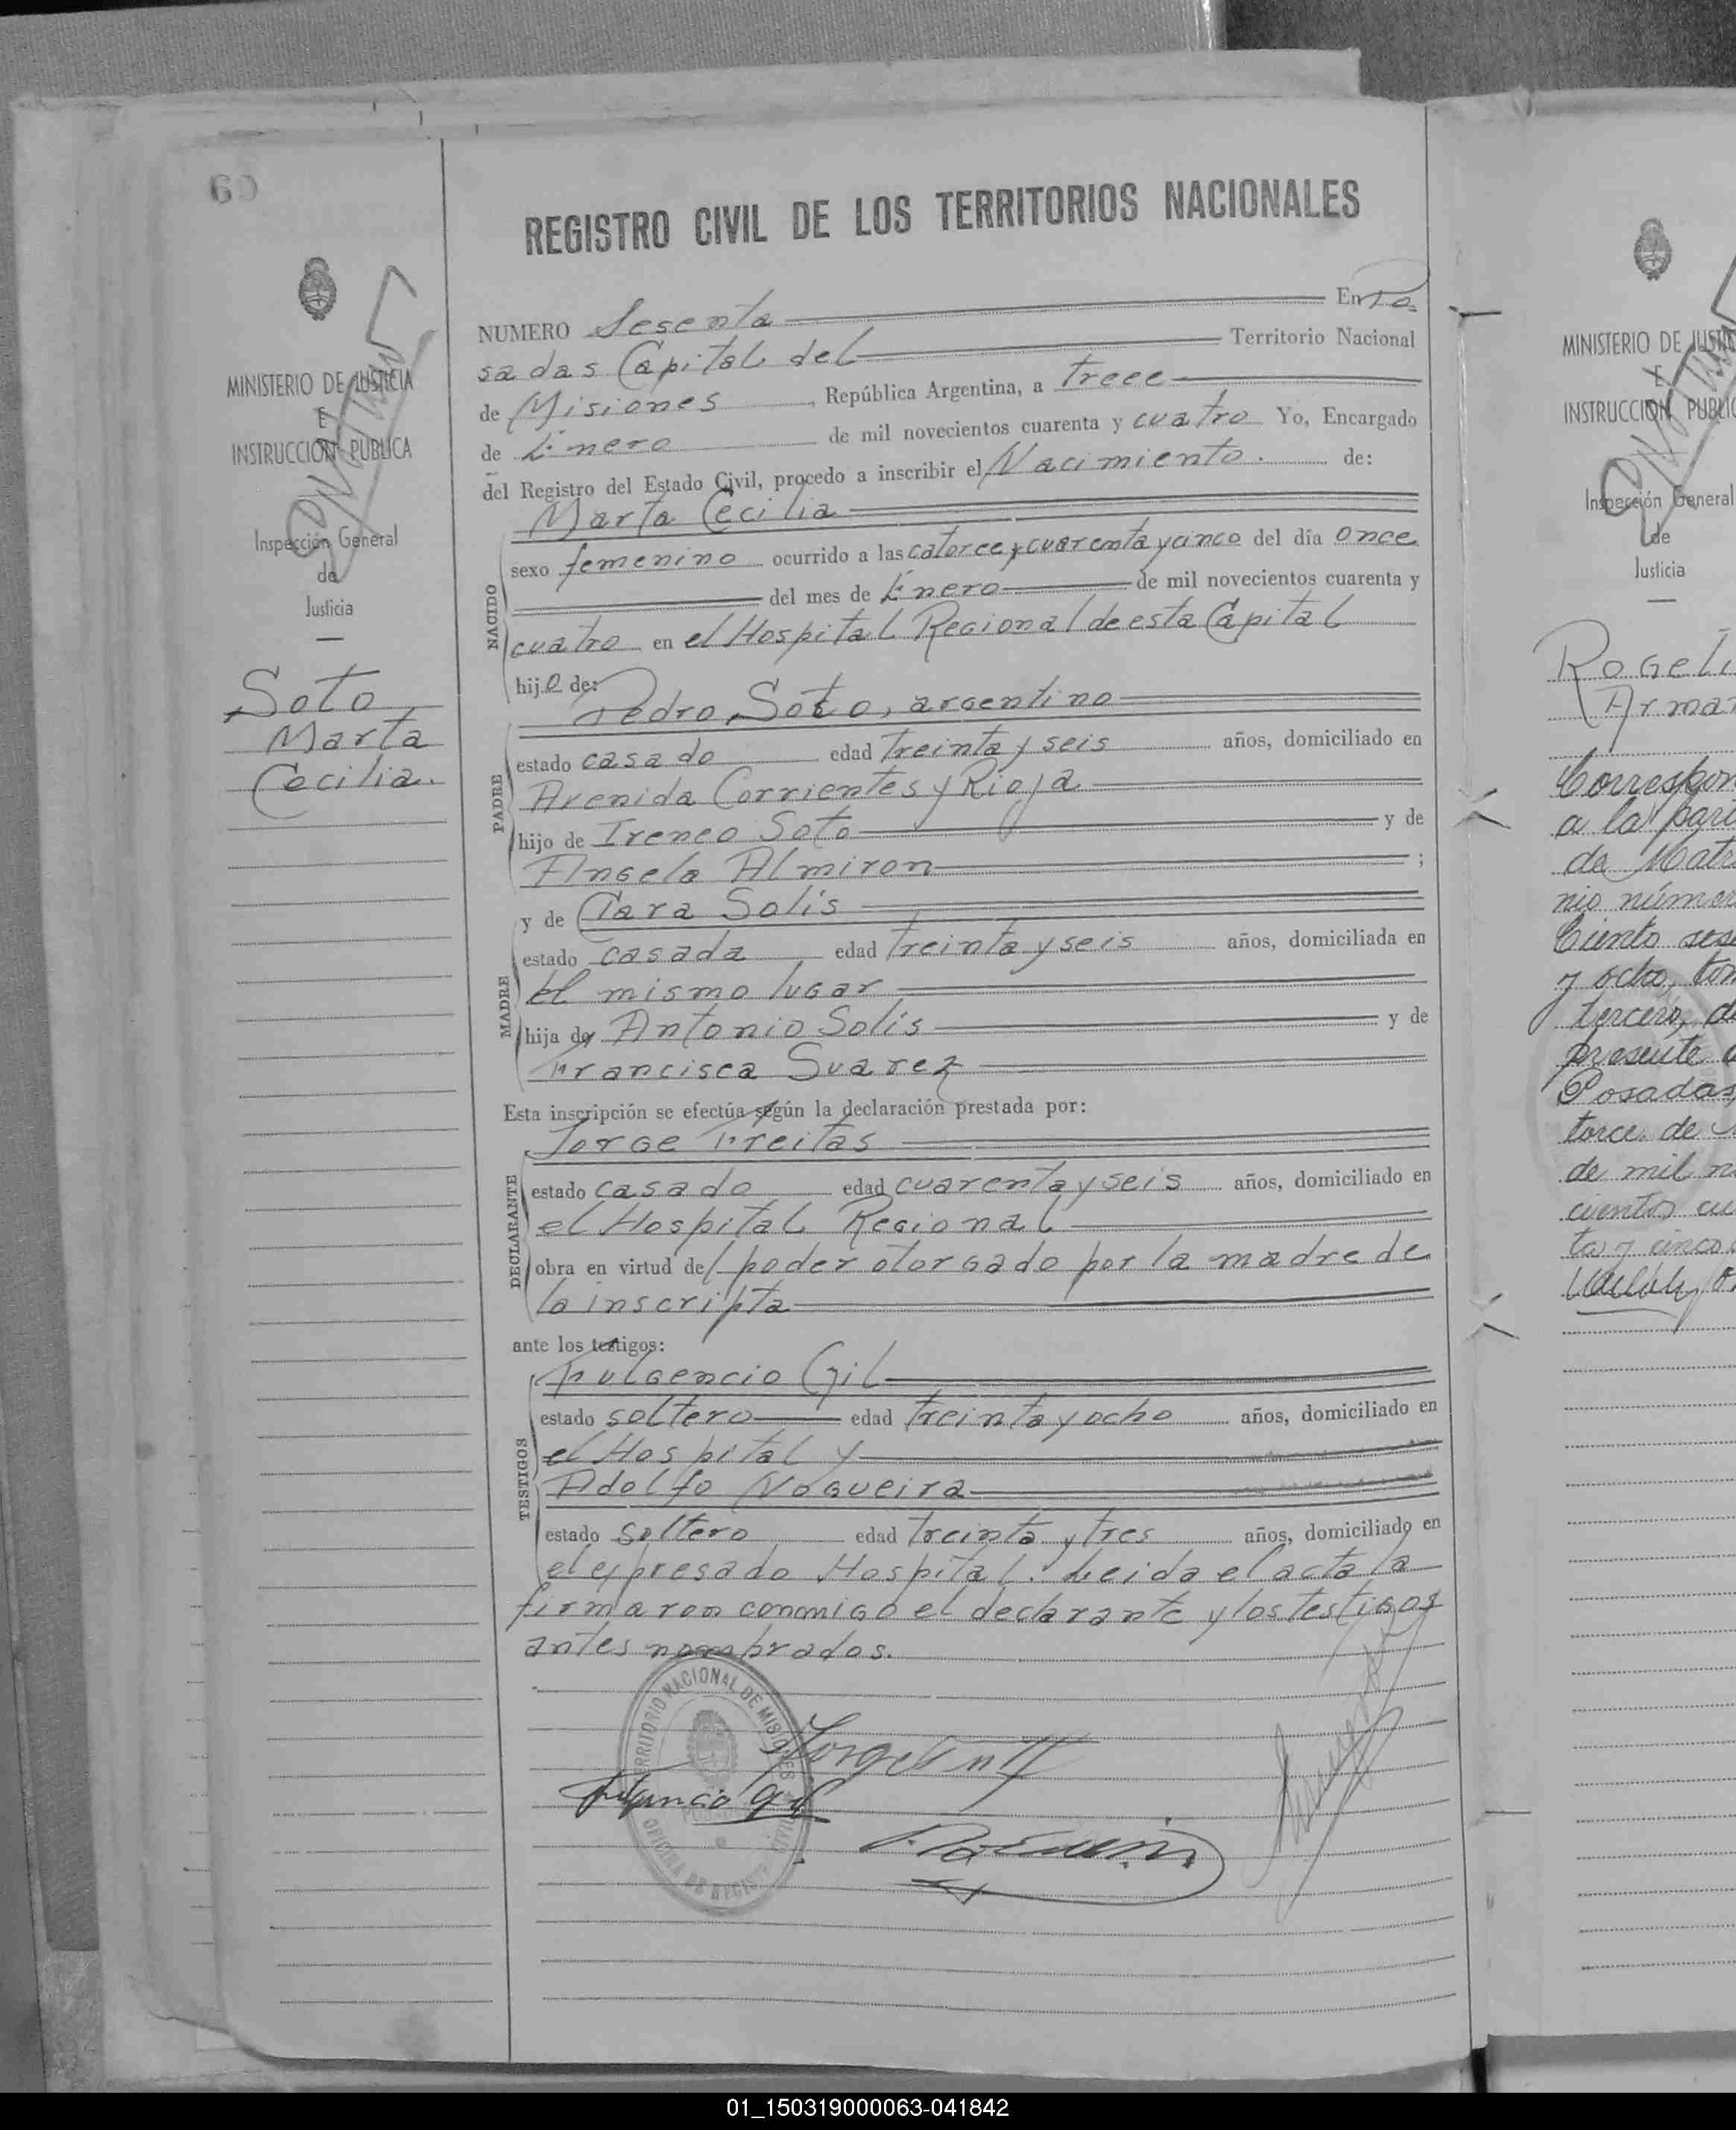 60
REGISTRO CIVIL DE LOS TERRITORIOS NACIONALES
MINISTERIO DE JUSTICIA
E
INSTRUCCION PUBLICA
Inspección General
de
Justicia
Soto
Marta
Cecilia.
NUMERO Sesenta En Po
sadas Capital del Territorio Nacional
de Misiones, República Argentina, a trece
de Enero de mil novecientos cuarenta y cuatro Yo, Encargado
del Registro del Estado Civil, procedo a inscribir el Nacimiento. de:
Marta Cecilia
NACIDO
sexo femenino ocurrido a las catorce y cuarenta y cinco del día once
del mes de Enero de mil novecientos cuarenta y
cuatro en el Hospital Regional de esta Capital
hija de:
PADRE
Pedro Soto, argentino
estado casado edad treinta y seis años, domiciliado en
Avenida Corrientes y Rioja
hijo de Ireneo Soto y de
Angela Almiron ;
MADRE
y de Clara Solis
estado casada edad treinta y seis años, domiciliada en
el mismo lugar
hija de Antonio Solis y de
Francisca Suarez
Esta inscripción se efectúa según la declaración prestada por:
DECLARANTE
Jorge Freitas
estado casado edad cuarenta y seis años, domiciliado en
el Hospital Regional
obra en virtud del poder otorgado por la madre de
la inscripta
ante los testigos:
TESTIGOS
Fulgencio Gil
estado soltero edad treinta y ocho años, domiciliado en
el Hospital y
Adolfo Nogueira
estado soltero edad treinta y tres años, domiciliado en
el expresado Hospital. Leida el acta la
firmaron conmigo el declarante y los testigos
antes nombrados.
TERRITORIO NACIONAL DE MISIONES
OFICINA DE REGIST CIVIL
Fulgencio Gil
MINISTERIO DE JUSTIC
E
INSTRUCCION PUBLIC
Inspección General
de
Justicia
Rogeli
Armar
Correspon
a la part
de Matr
nio númer
Ciento sese
y ocho, tom
tercero, d
presente
Posadas,
torce de
de mil n
cientos cu
ta y cinco
01_150319000063-041842